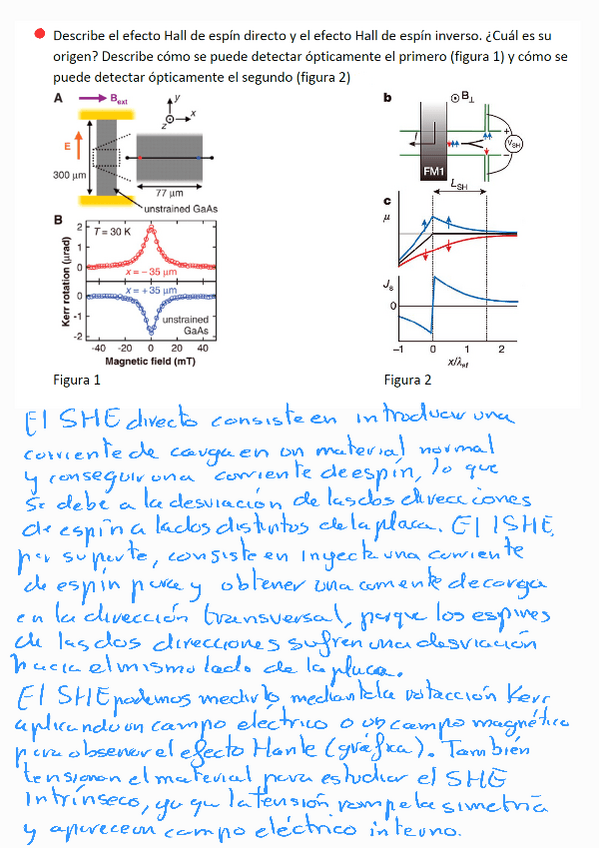 Describe el efecto Hall de espín directo y el efecto Hall de espín inverso. ¿Cuál es su
origen? Describe cómo se puede detectar ópticamente el primero (figura 1) y cómo se
puede detectar ópticamente el segundo (figura 2)
A
B_ext
y
x
z
E
300 μm
77 μm
unstrained GaAs
B
T = 30 K
x = − 35 μm
x = + 35 μm
unstrained
GaAs
Kerr rotation (μrad)
2
1
0
0
-1
-2
-40 -20 0 20 40
Magnetic field (mT)
Figura 1
b
B⊥
I
FM1
+
−
V_SH
L_SH
c
μ
J_s
0
-1 0 1 2
x/λ_sf
Figura 2
El SHE directo consiste en introducir una
corriente de carga en un material normal
y conseguir una corriente de espín, lo que
se debe a la desviación de las dos direcciones
de espín a lados distintos de la placa. El ISHE,
por su parte, consiste en inyectar una corriente
de espín pura y obtener una corriente de carga
en la dirección transversal, porque los espines
de las dos direcciones sufren una desviación
hacia el mismo lado de la placa.
El SHE podemos medirlo mediante la rotacción Kerr
aplicando un campo eléctrico o un campo magnético
para observar el efecto Hanle (gráfica). También
tensionan el material para estudiar el SHE
Intrínseco, ya que la tensión rompe la simetría
y aparece un campo eléctrico interno.